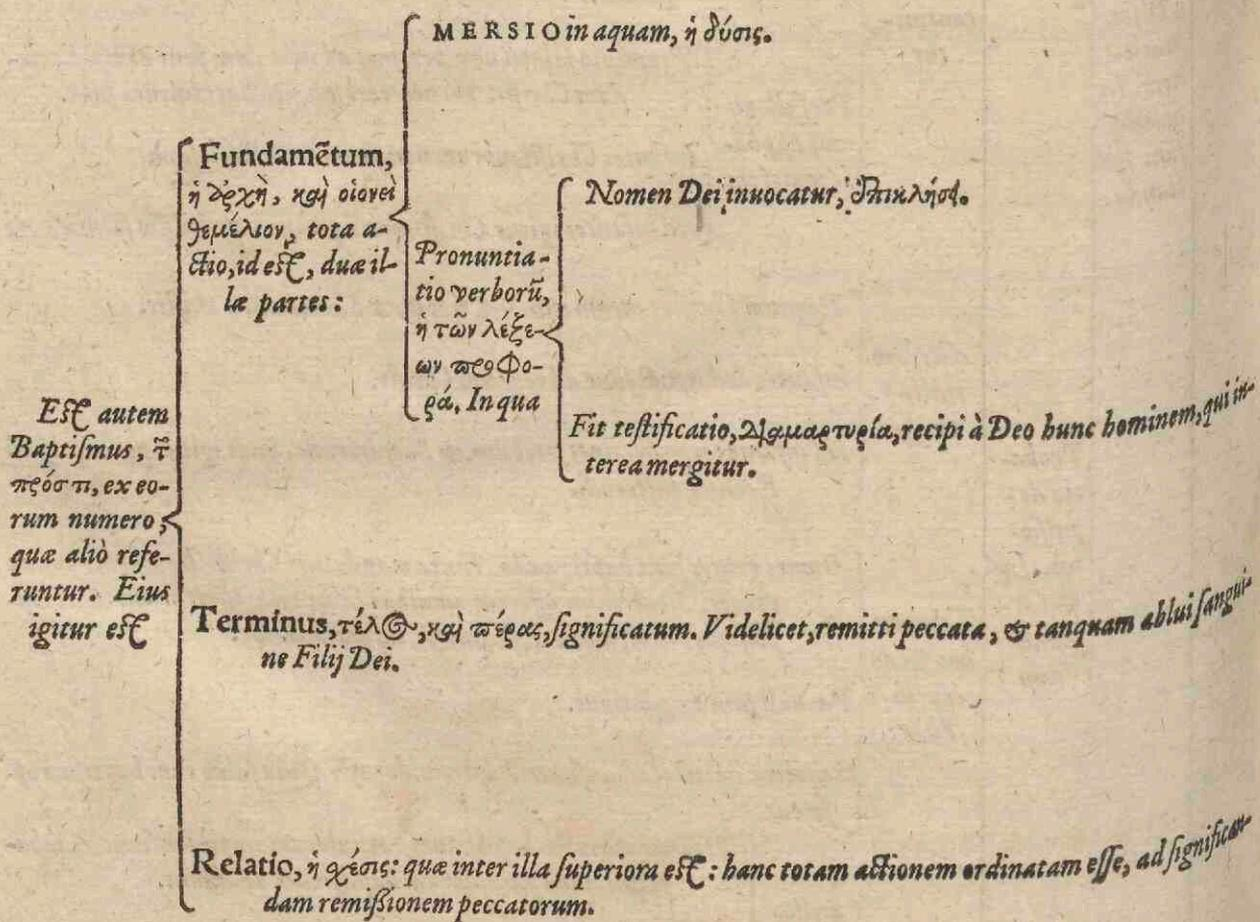 Est autem
Baptiſmus, τῶν
πρός τι, ex eo-
rum numero,
quæ aliò refe-
runtur. Eius
igitur est
Fundamētum,
ἡ ἀρχὴ, καὶ οἱονεὶ
θεμέλιον, tota a-
ctio, id est, duæ il-
læ partes:
MERSIO in aquam, ἡ δύσις.
Pronuntia-
tio verborū,
ἡ τῶν λέξε-
ων προφο-
ρά. In qua
Nomen Dei inuocatur, ἐπικλήσει.
Fit teſtificatio, διαμαρτυρία, recipi à Deo hunc hominem, qui in-
terea mergitur.
Terminus, τέλος, καὶ πέρας, ſignificatum. Videlicet, remitti peccata, & tanquam ablui ſangui-
ne Filij Dei.
Relatio, ἡ σχέσις: quæ inter illa ſuperiora est: hanc totam actionem ordinatam eſſe, ad ſignifican-
dam remiſsionem peccatorum.